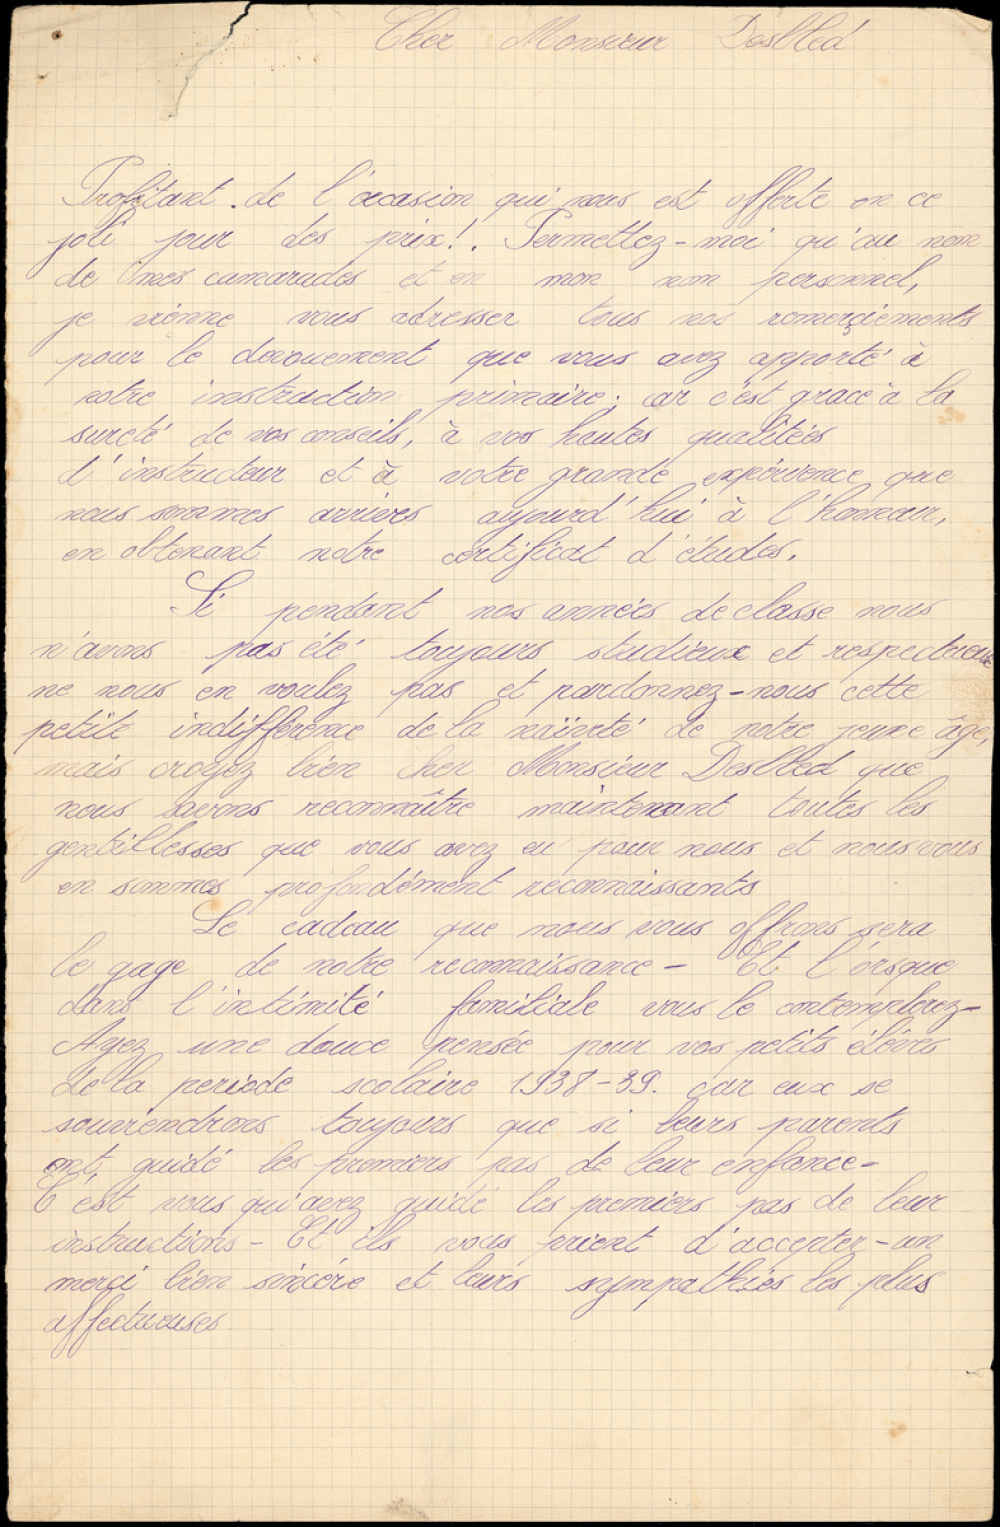 Cher Monsieur Desbled
Profitant de l'occasion qui nous est offerte en ce
joli jour des prix!. Permettez-moi qu'au nom
de mes camarades et en mon nom personnel,
je vienne vous adresser tous nos remerçiements
pour le devouement que vous avez apporté à
notre instruction primaire; car c'est grace à la
sureté de vos conseils, à vos hautes qualitées
d'instructeur et à votre grande expérience que
nous sommes arrivés aujourd'hui à l'honneur,
en obtenant notre certificat d'études.
Si pendant nos années de classe nous
n'avons pas été toujours studieux et respectueux
ne nous en voulez pas et pardonnez-nous cette
petite indifférence de la naïveté de notre jeune âge,
mais croyez bien cher Monsieur Desbled que
nous savons reconnaître maintenant toutes les
gentillesses que vous avez eu pour nous et nous vous
en sommes profondément reconnaissants
Le cadeau que nous vous offrons sera
le gage de notre reconnaissance - Et l'orsque
dans l'intimité familiale vous le contemplerez-
Ayez une douce pensée pour vos petits élèves
de la periode scolaire 1938-39. car eux se
souviendrons toujours que si leurs parents
ont guidé les premiers pas de leur enfance-
C'est vous qui avez guidé les premiers pas de leur
instructions - Et ils vous prient d'accepter-un
merci bien sincère et leurs sympathies les plus
affectueuses